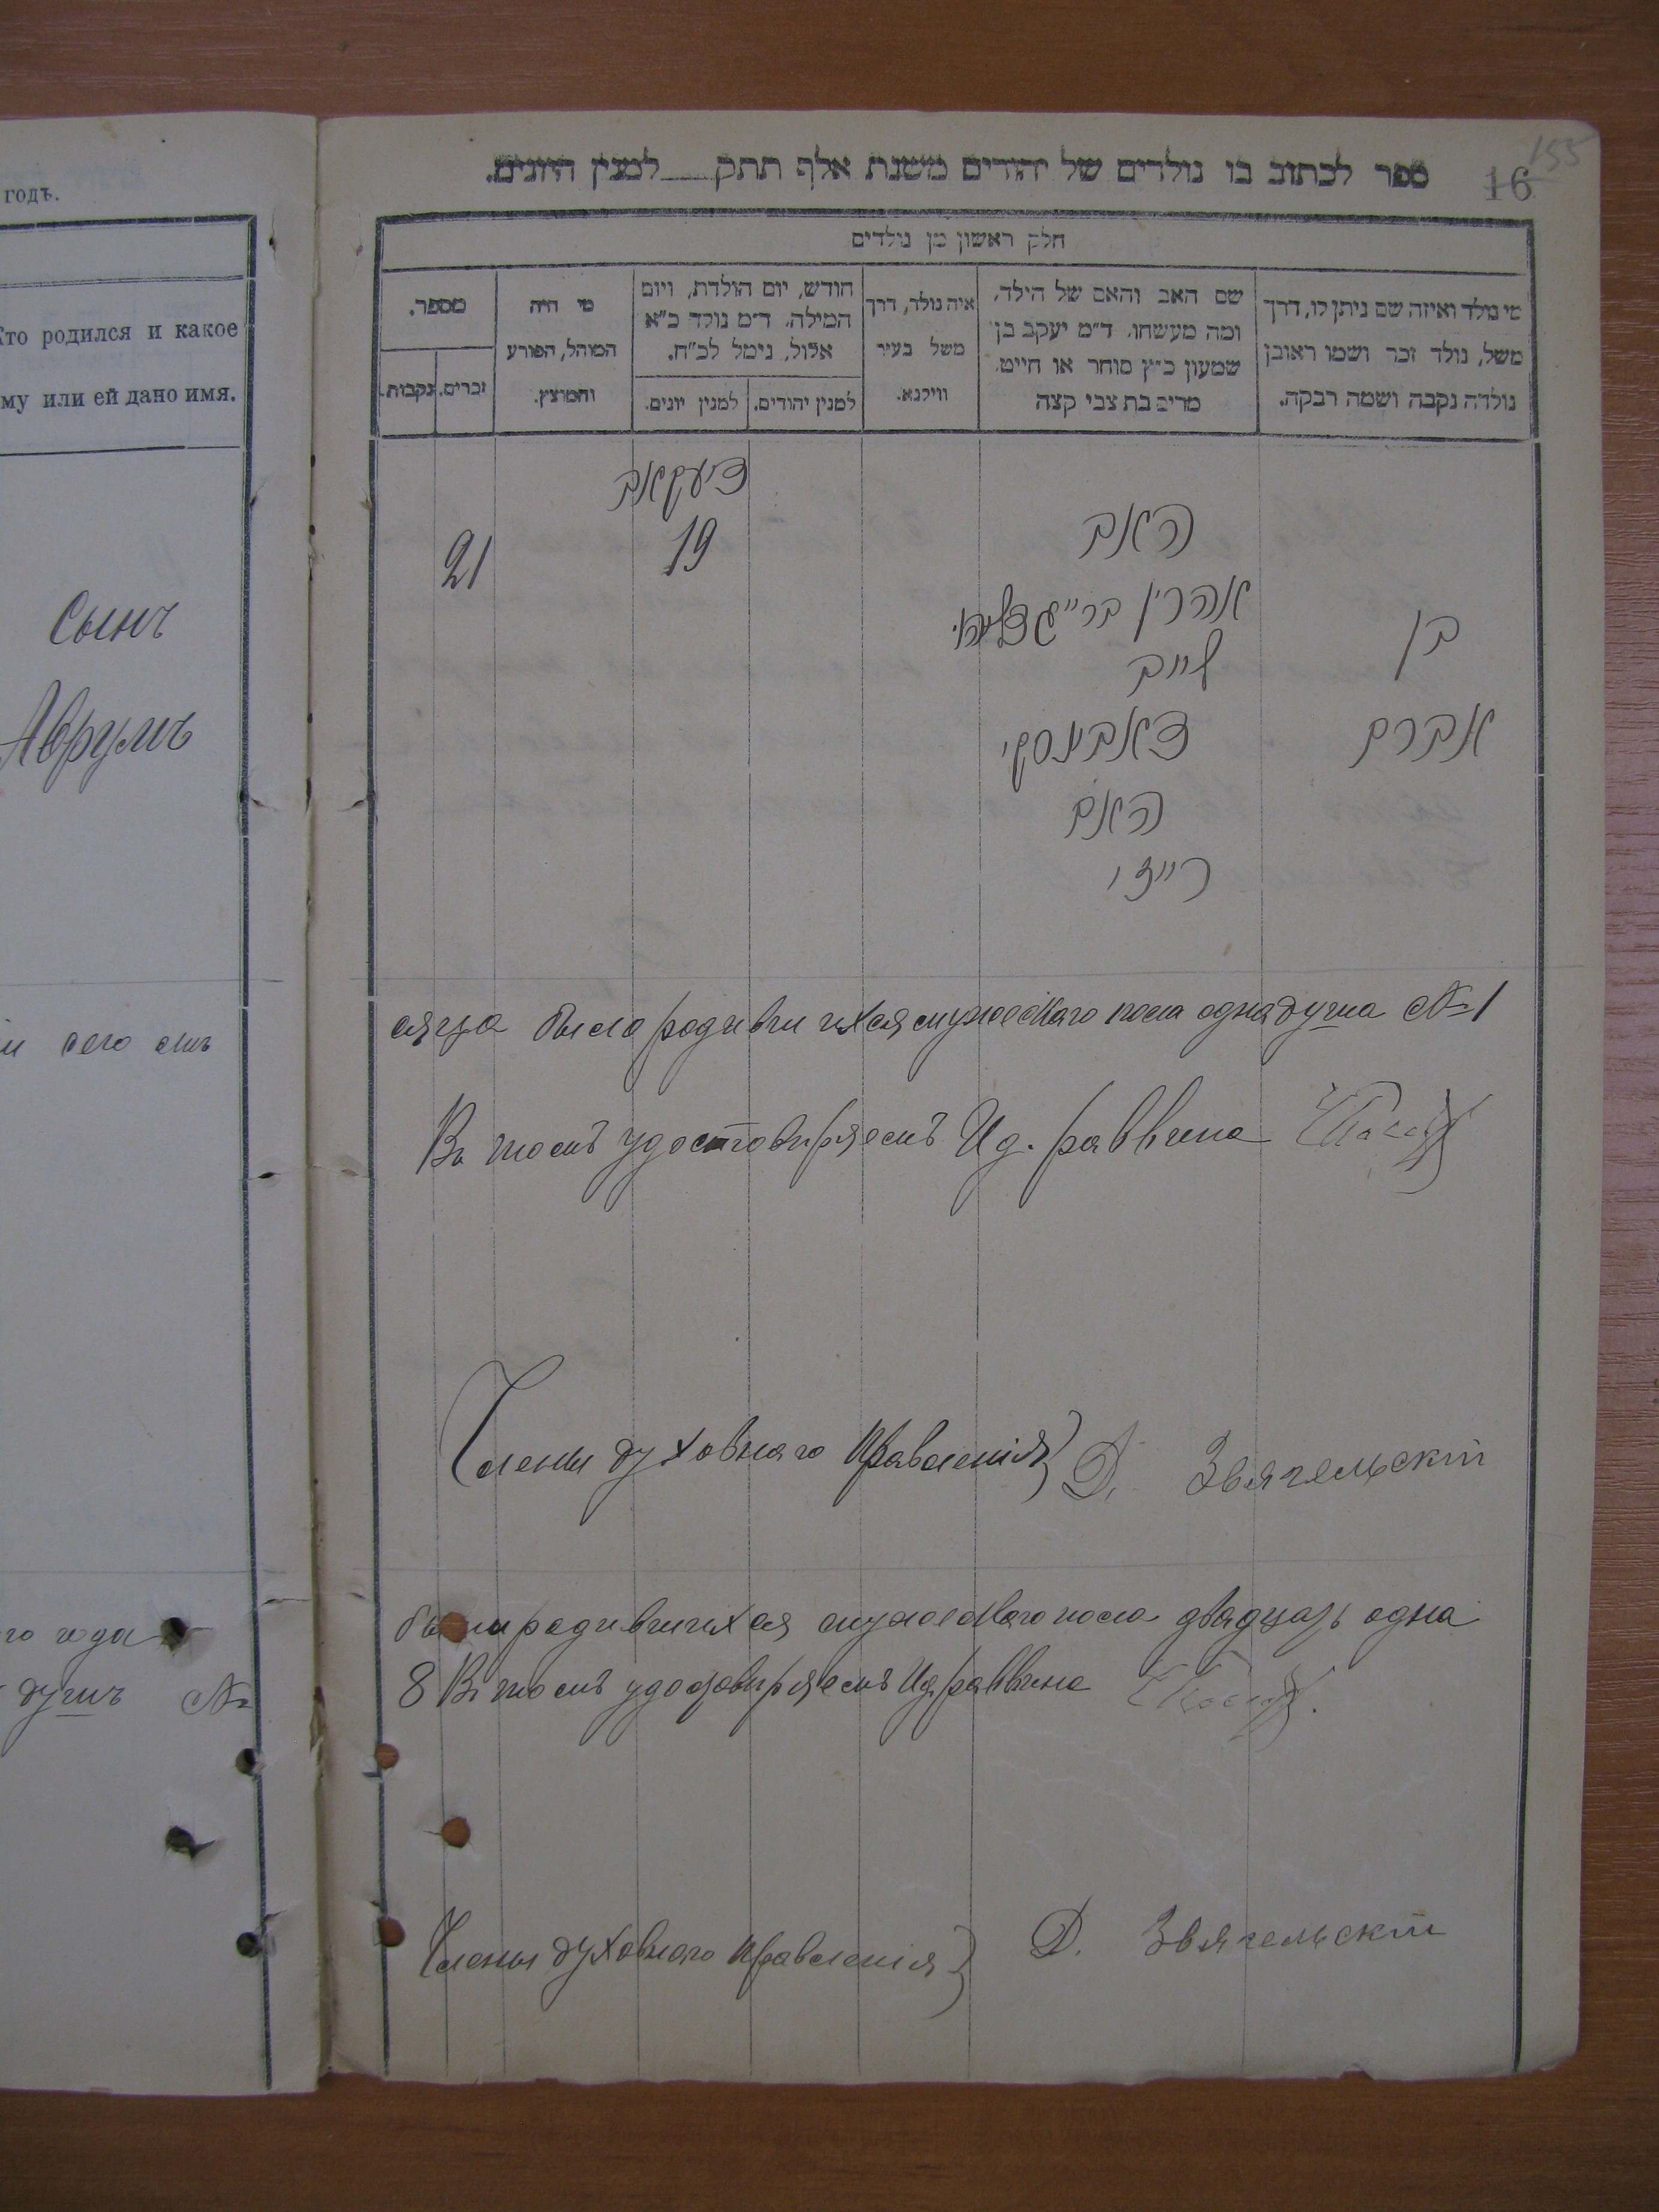 годъ.
Кто родился и какое
му или ей дано имя.
Сынъ
Аврумъ
сего
го года
душъ №
155
16
ספר לכתוב בו נולדים של יהודים משנת אלף תתק___למנין היונים.
חלק ראשון מן נולדים
מי נולד ואיזה שם ניתן לו, דרך
משל, נולד זכר ושמו ראובן
נולדה נקבה ושמה רבקה.
שם האב והאם של הילד,
ומה מעשהו. ד״מ יעקב בן
שמעון כ״ץ סוחר או חייט.
מרים בת צבי קצה
איה נולד, דרך
משל בעיר
ווילנא.
חודש, יום הולדת, ויום
המילה. ד״מ נולד כ״א
אלול, נימל לכ״ח.
למנין יהודים.
למנין יונים.
מי היה
המוהל, הפורע
והמוצץ.
מספר.
זכרים.
נקבות.
דיעקאב
21
19
האב
אהרן בר״
לייב
בן
דאבינסקי
אברם
האם
רייזי
сяца было родившихся мужескаго пола одна душа № 1
Въ томъ удостовѣряемъ И.д. раввина
Члены духовнаго Правленія} Д. Звягельскій
были родившихся мужескаго пола двадцать одна
8 Въ томъ удостовѣряемъ И.д. раввина
Члены духовнаго Правленія} Д. Звягельскій